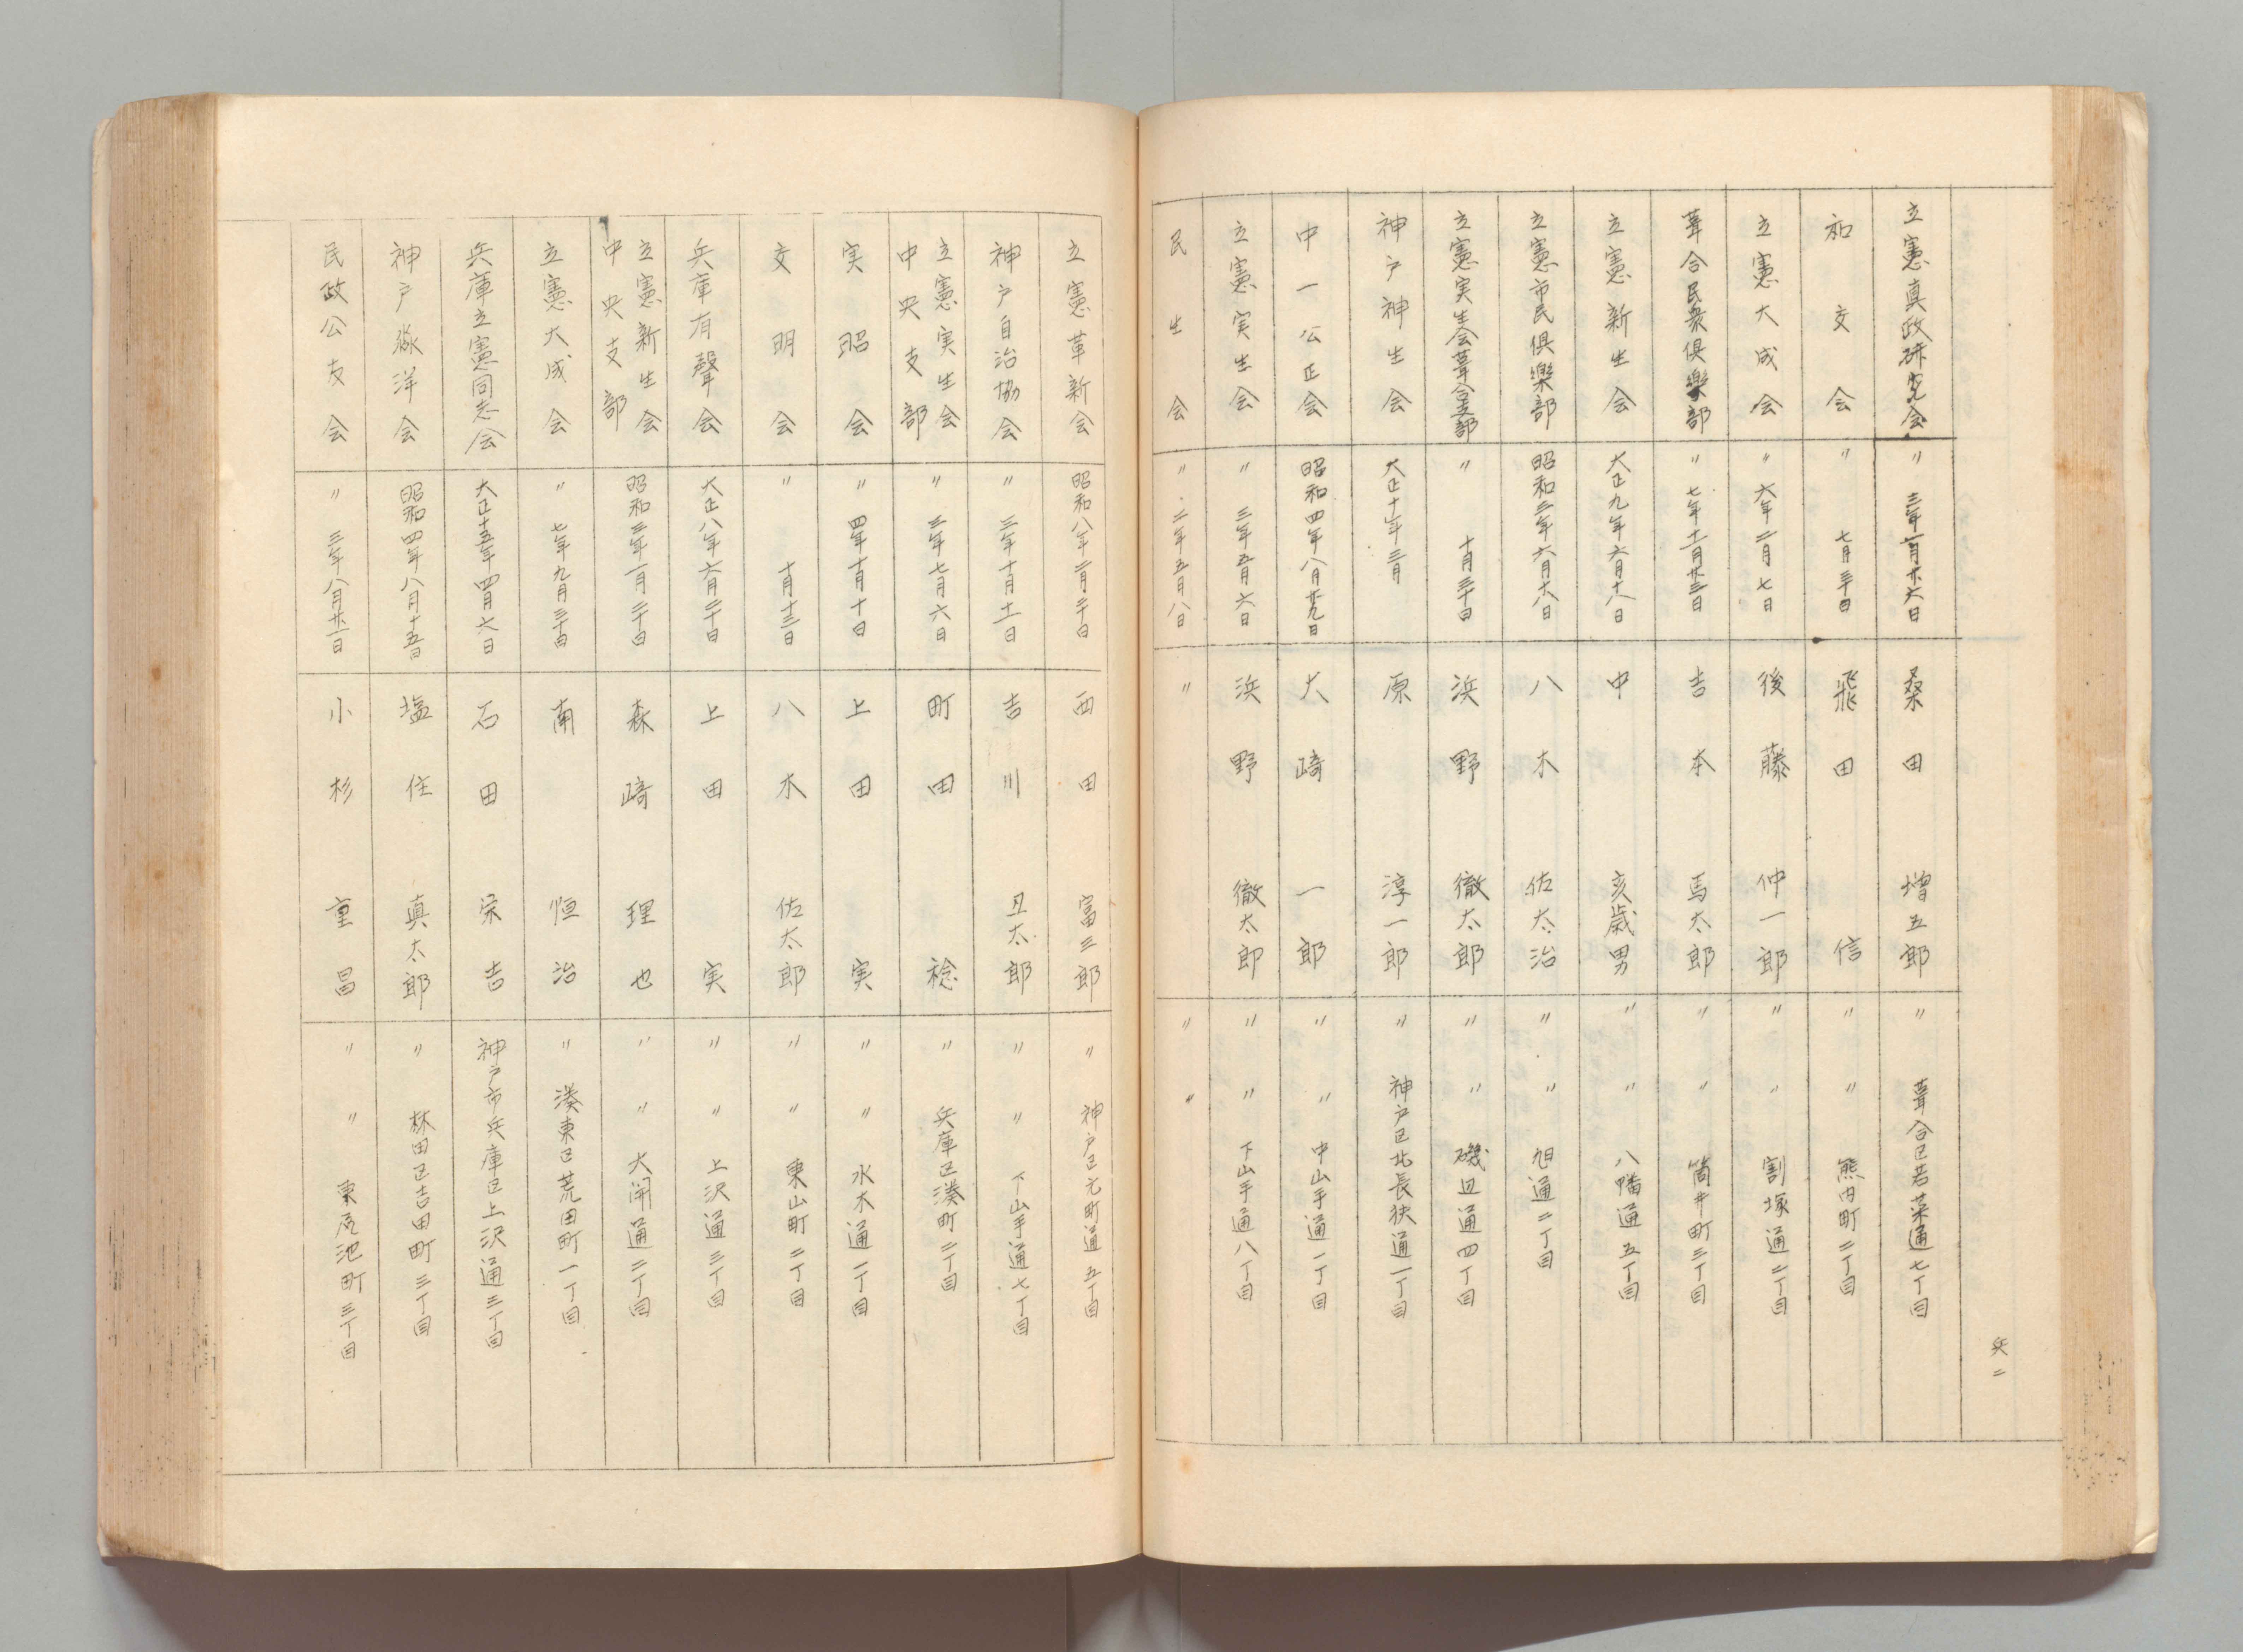 兵二
立憲真政研究会 〃 三年一月廿六日 桑田増五郎 〃 葺合区若菜通七丁目
和交会 〃 七月三十日 飛田信 〃 〃 熊内町二丁目
立憲大成会 〃 六年二月七日 後藤仲一郎 〃 〃 割塚通二丁目
葺合民衆倶楽部 〃 七年十一月廿三日 吉本馬太郎 〃 〃 筒井町三丁目
立憲新生会 大正九年六月十八日 中亥歳男 〃 〃 八幡通五丁目
立憲市民倶楽部 昭和三年六月十八日 八木佐太治 〃 〃 旭通二丁目
立憲実生会葺合支部 〃 十月三十日 浜野徹太郎 〃 〃 磯辺通四丁目
神戸神生会 大正十年三月 原淳一郎 〃 神戸区北長狭通一丁目
中一公正会 昭和四年八月廿九日 大崎一郎 〃 〃 中山手通一丁目
立憲実生会 〃 三年五月六日 浜野徹太郎 〃 〃 下山手通八丁目
民生会 〃 二年五月八日 〃 〃 〃
立憲革新会 昭和八年二月二十日 西田富三郎 〃 神戸区元町通五丁目
神戸自治協会 〃 三年十月十一日 吉川丑太郎 〃 〃 下山手通七丁目
立憲実生会中央支部 〃 三年七月六日 町田稔 〃 兵庫区湊町二丁目
実昭会 〃 四年十月十日 上田実 〃 〃 水木通一丁目
文明会 〃 十月十三日 八木佐太郎 〃 〃 東山町二丁目
兵庫有聲会 大正八年六月二十日 上田実 〃 〃 上沢通三丁目
立憲新生会中央支部 昭和三年一月二十日 森崎理也 〃 〃 大開通二丁目
立憲大成会 〃 七年九月三十日 南恒治 〃 湊東区荒田町一丁目
兵庫立憲同志会 大正十五年四月六日 石田宗吉 神戸市兵庫区上沢通三丁目
神戸淼洋会 昭和四年八月十五日 塩住真太郎 〃 林田区吉田町三丁目
民政公友会 〃 三年八月廿一日 小杉重昌 〃 〃 東尻池町三丁目